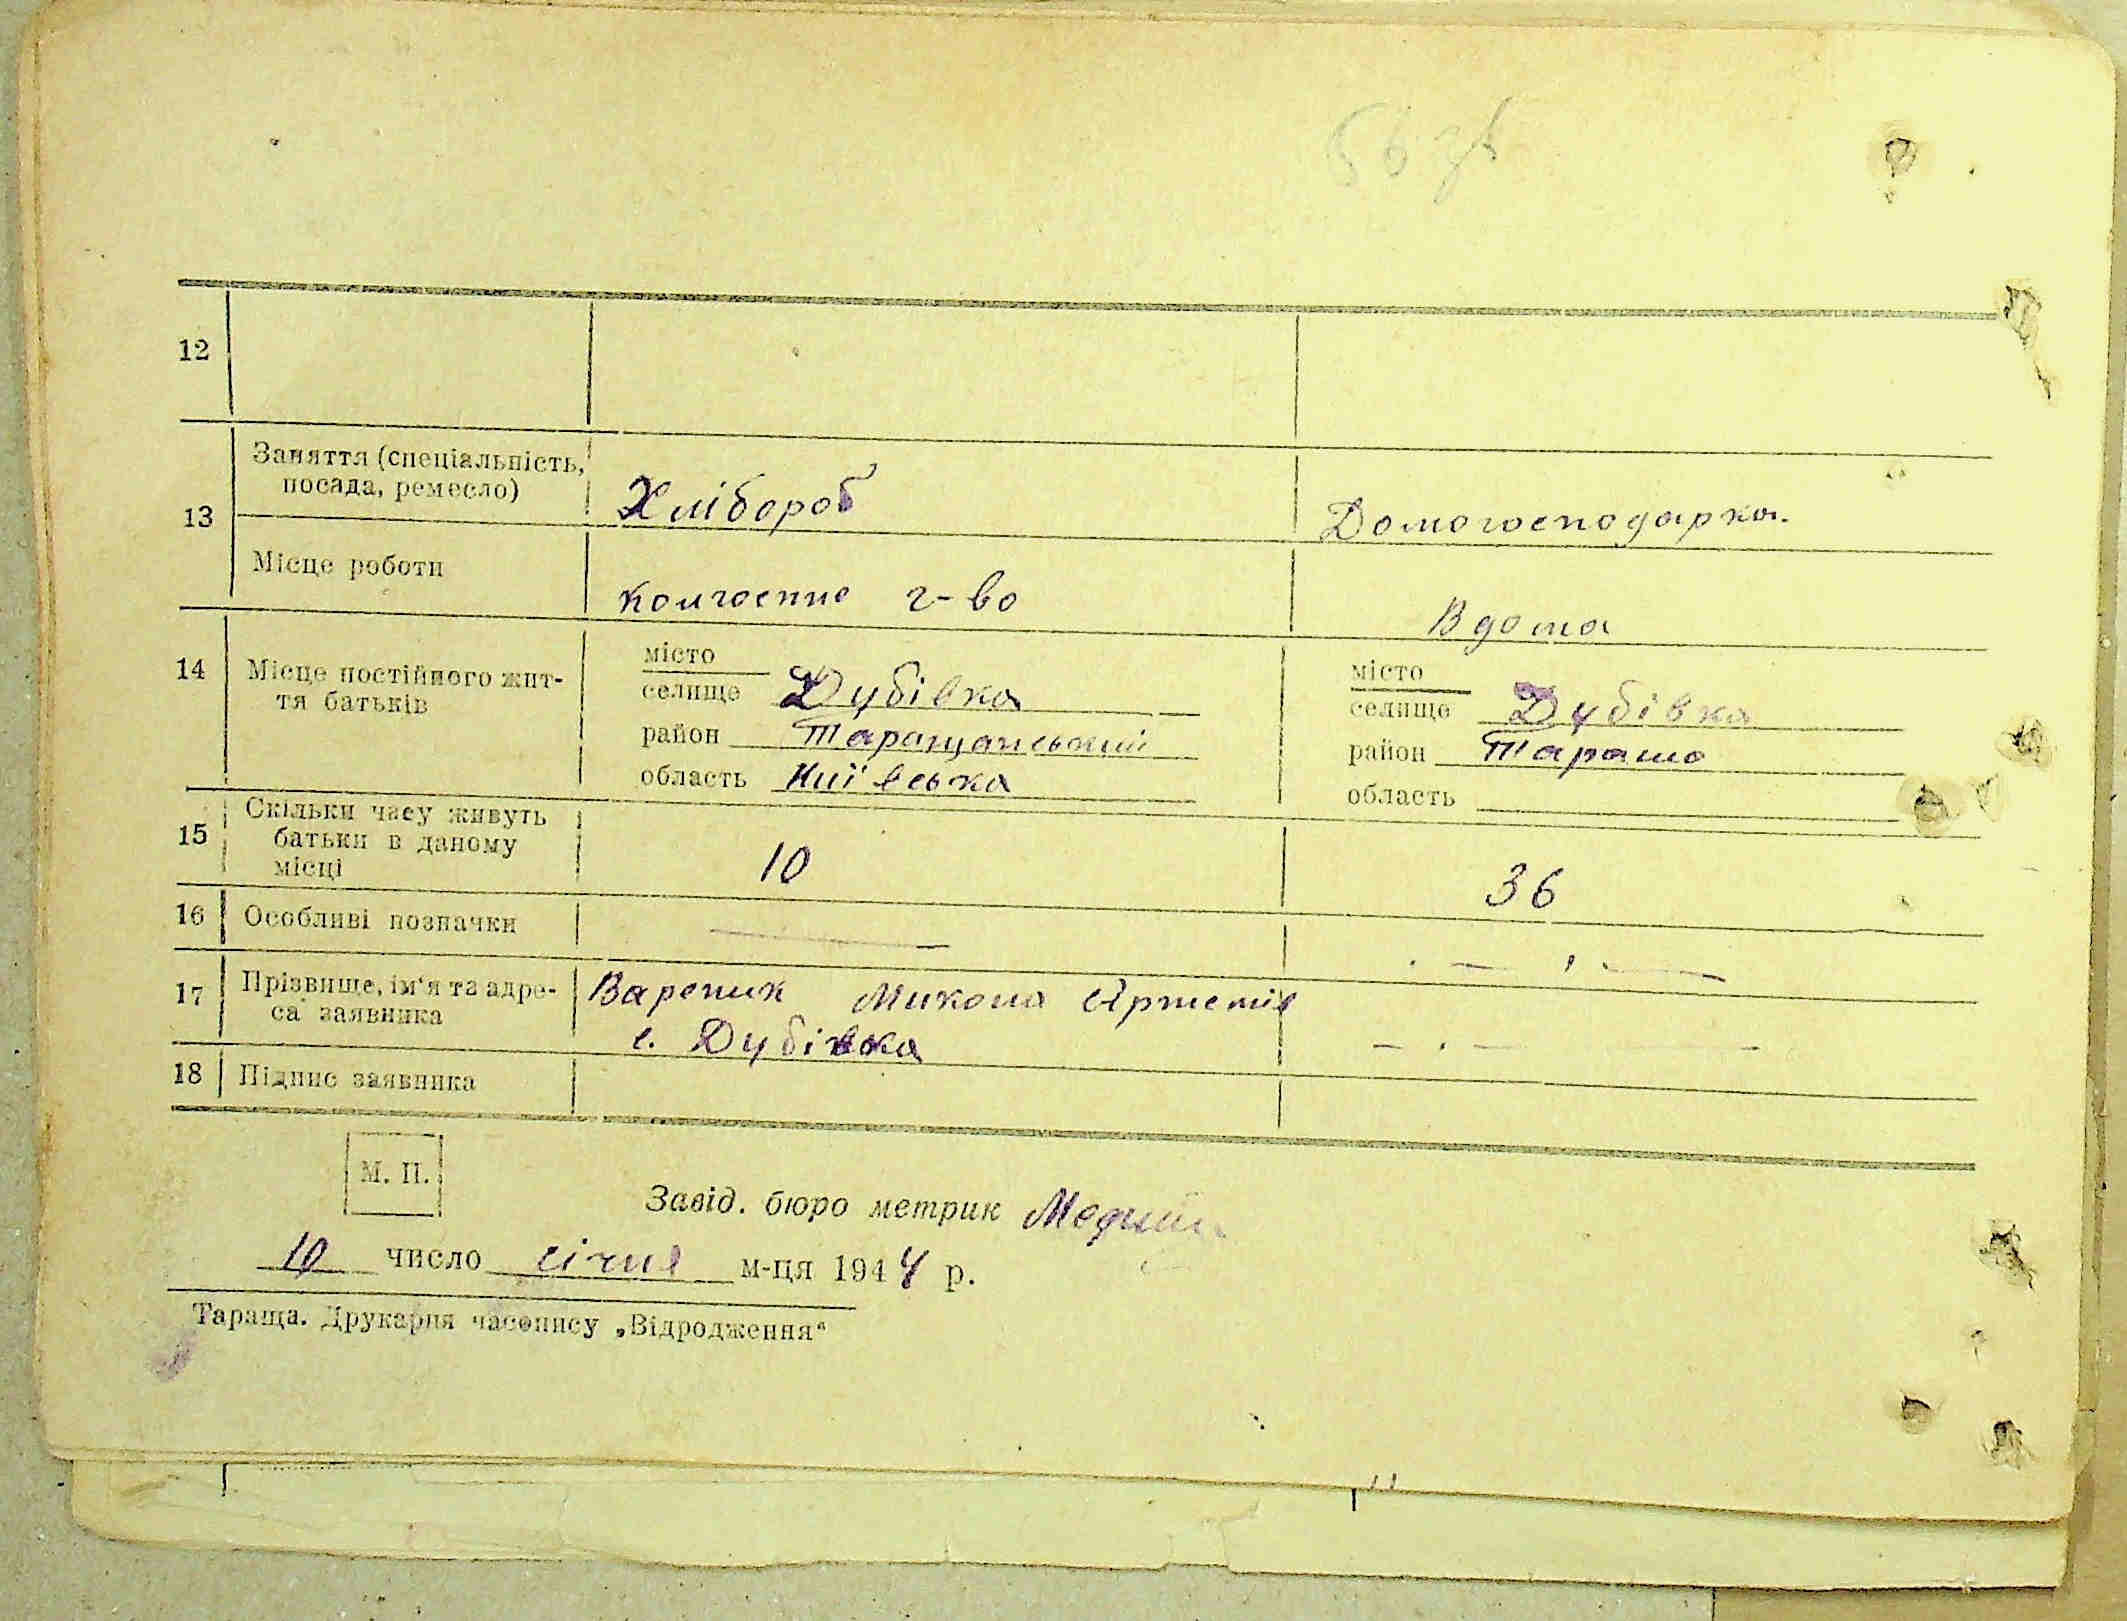 12
13 Заняття (спеціальність, посада, ремесло) Хлібороб Домогосподарка.
Місце роботи колгоспне г-во Вдома
14 Місце постійного життя батьків
місто місто
селище Дубівка селище Дубівка
район Таращанський район Тараща
область Київська область
15 Скільки часу живуть батьки в даному місці 10 36
16 Особливі позначки
17 Прізвище, ім'я та адреса заявника Вареник Микола Артемів
с. Дубівка
18 Підпис заявника
М. П.
Завід. бюро метрик
10 число січня м-ця 1944 р.
Тараща. Друкарня часопису „Відродження“